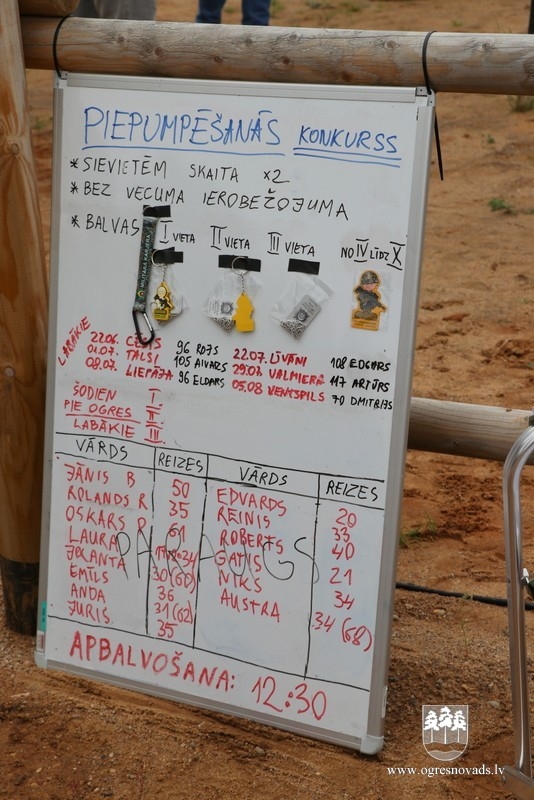 PIEPUMPĒŠANĀS KONKURSS
* SIEVIETĒM SKAITA ×2
* BEZ VECUMA IEROBEŽOJUMA
* BALVAS I VIETA II VIETA III VIETA NO IV LĪDZ X
LABĀKIE
22.06. CĒSIS 96 ROJS 22.07. LĪVĀNI 108 EDGARS
01.07. TALSI 105 AIVARS 29.07. VALMIERA 117 ARTŪRS
08.07. LIEPĀJA 96 ELDARS 05.08 VENTSPILS 70 DMITRIJS
ŠODIEN I
PIE OGRES II
LABĀKIE III
VĀRDS REIZES VĀRDS REIZES
JĀNIS B 50 EDVARDS 20
ROLANDS R 35 REINIS 33
OSKARS P 61 ROBERTS 40
LAURA GATIS 21
JOLANTA 30(60) NIKS 34
EMĪLS 36 AUSTRA 34 (68)
ANDA 31(62)
JURIS 35
PARAUGS
APBALVOŠANA: 12:30
www.ogresnovads.lv